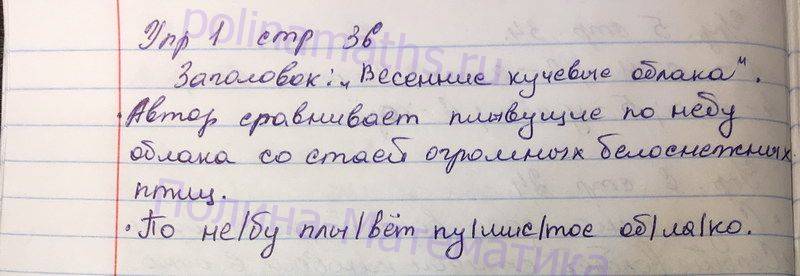 polinamaths.ru
Упр 1 стр 36
Заголовок: „Весенние кучевые облака".
• Автор сравнивает плывущие по небу
облака со стаей огромных белоснежных
птиц.
Полина-Математика
• По не/бу плы/вёт пу/шис/тое об/ла/ко.